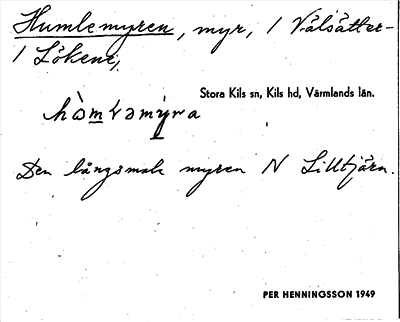 Humlemyren, myr, / Välsätter-
/ Lökene,
Stora Kils sn, Kils hd, Värmlands län.
Den långsmala myren N Lilltjärn.
PER HENNINGSSON 1949